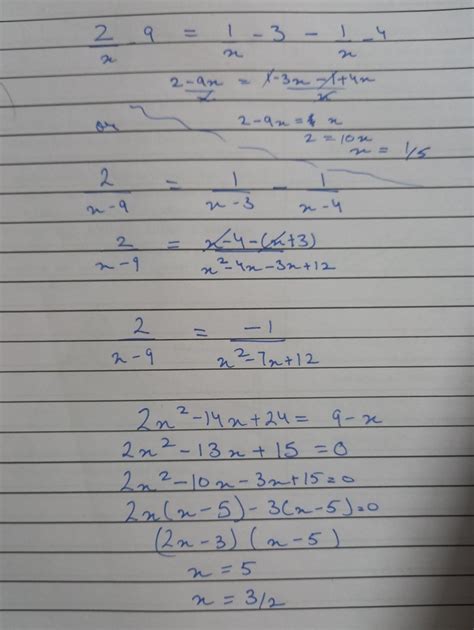 2/x - 9 = 1/x - 3 - 1/x - 4
(2-9x)/x = (1-3x-1+4x)/x
or
2-9x = x
2 = 10x
x = 1/5
2/(x-9) = 1/(x-3) - 1/(x-4)
2/(x-9) = (x-4-(x+3))/(x²-4x-3x+12)
2/(x-9) = -1/(x²-7x+12)
2x²-14x+24 = 9-x
2x²-13x+15=0
2x²-10x-3x+15=0
2x(x-5)-3(x-5)=0
(2x-3)(x-5)
x = 5
x = 3/2